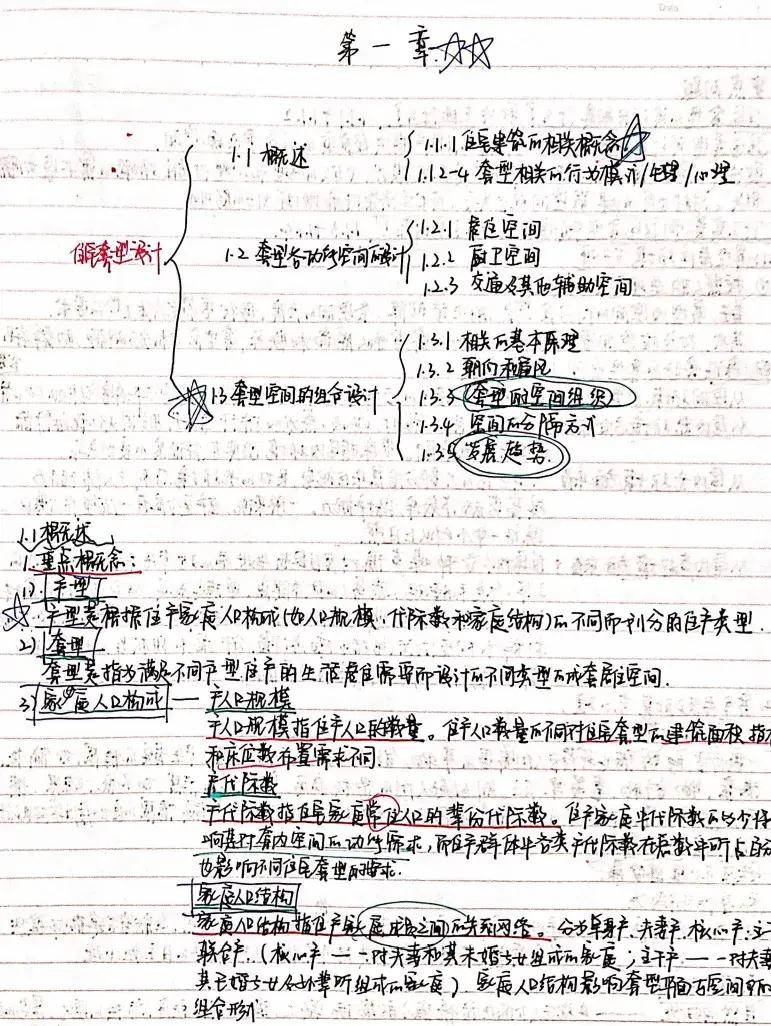 第一章
1.1 概述
1.1.1 住宅建筑的相关概念
1.1.2-4 套型相关的行为模式/生理/心理
住宅套型设计
1.2 套型各功能空间的设计
1.2.1 居住空间
1.2.2 厨卫空间
1.2.3 交通及其他辅助空间
1.3 套型空间的组合设计
1.3.1 相关的基本原理
1.3.2 朝向和通风
1.3.3 套型的空间组织
1.3.4 空间的分隔方式
1.3.5 发展趋势
1.1 概述
1. 重点概念:
1) 户型
户型是根据住户家庭人口构成(如人口规模、代际数和家庭结构)的不同而划分的住户类型.
2) 套型
套型是指为满足不同户型住户的生活居住需要而设计的不同类型的成套居住空间.
3) 家庭人口构成 — 户人口规模
户人口规模指住户人口的数量。住户人口数量的不同对住宅套型的建筑面积指
和床位数布置需求不同.
户代际数
户代际数指住户家庭常住人口的辈份代际数。住户家庭中代际数的多少将
响其对套内空间的功能需求,而住户群体中各类户代际数在总数中所占百分
也影响不同住宅套型的要求.
家庭人口结构
家庭人口结构指住户家庭成员之间的关系网络。分为单身户、夫妻户、核心户、主
联合户.(核心户——一对夫妻和其未婚子女组成的家庭;主干户——一对夫妻
其已婚子女及孙辈所组成的家庭)家庭人口结构影响套型平面与空间的
组合形式